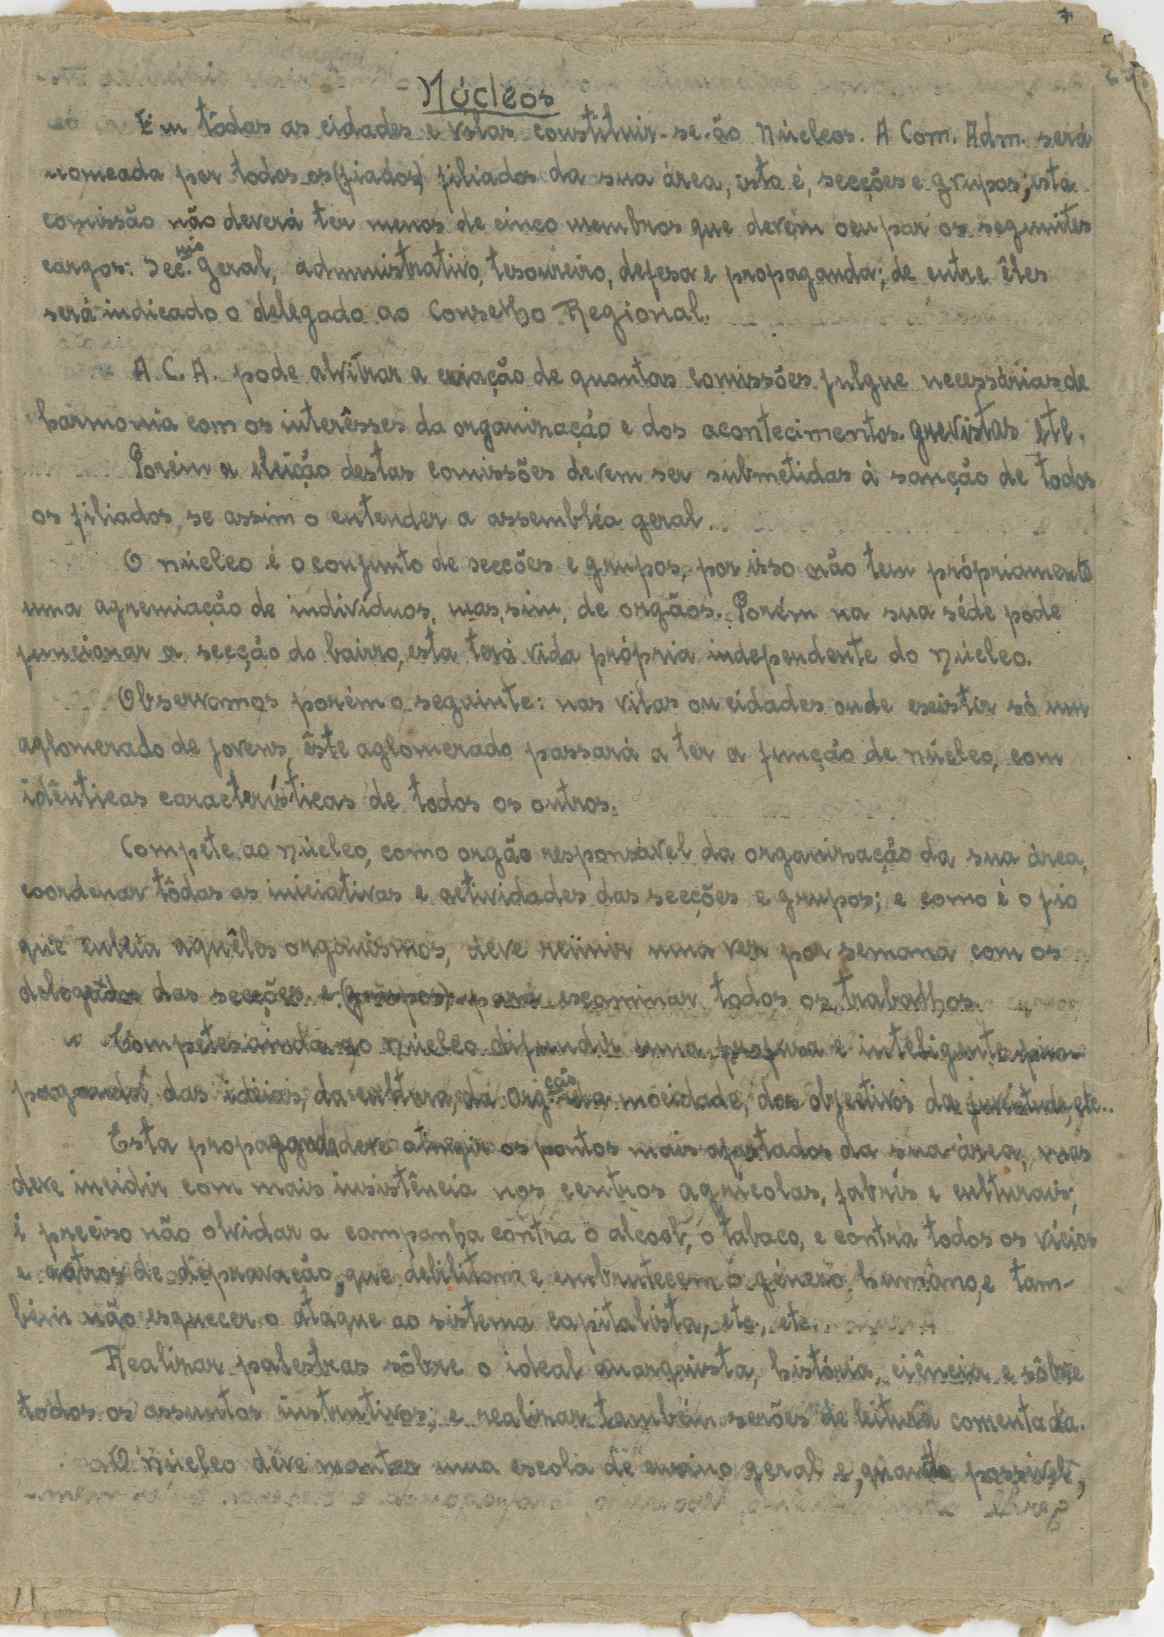 Núcleos
Em tôdas as cidades e vilas constituir-se-ão Núcleos. A Com. Adm. será
nomeada por todos os (fiados) filiados da sua área, isto é, secções e grupos; esta
comissão não deverá ter menos de cinco membros que devem ocupar os seguintes
cargos: Sec.nio geral, administrativo, tesoureiro, defesa e propaganda; de entre êles
será indicado o delegado ao Conselho Regional.
A C. A. pode alvitrar a criação de quantas comissões julgue necessárias de
harmonia com os interêsses da organização e dos acontecimentos. grevistas etc.
Porém a eleição destas comissões devem ser submetidas à sanção de todos
os filiados, se assim o entender a assembléa geral.
O núcleo é o conjunto de secções e grupos, por isso não tem própriamente
uma agremiação de indivíduos, mas, sim, de orgãos. Porém na sua séde pode
funcionar a secção do bairro, esta terá vida própria independente do Núcleo.
Observamos porém o seguinte: nas vilas ou cidades onde existir só um
aglomerado de jovens, êste aglomerado passará a ter a função de núcleo, com
idênticas características de todos os outros.
Compete ao núcleo, como orgão responsável da organização da sua área,
coordenar tôdas as iniciativas e actividades das secções e grupos; e como é o fio
que enleia aquêles organismos, deve reünir uma vez por semana com os
delegados das secções e (grupos) para examinar todos os trabalhos.
Compete ainda ao núcleo difundir uma profusa e inteligente pro-
paganda das idéias, da cultura, da Org.ção da mocidade, dos objectivos da juventude, etc..
Esta propaganda deve atingir os pontos mais afastados da sua área, mas
deve incidir com mais insistência nos centros agrícolas, fabrís e culturais;
é preciso não olvidar a campanha contra o alcool, o tabaco, e contra todos os vícios
e antros de depravação, que debilitam e embrutecem o género humâno, e tam-
bém não esquecer o ataque ao sistema capitalista, etc., etc.
Realizar palestras sôbre o ideal anarquista, história, ciência e sôbre
todos os assuntos instrutivos; e realizar também serões de leitura comentada.
O núcleo deve manter uma escola de ensino geral e, quando possivel,
11